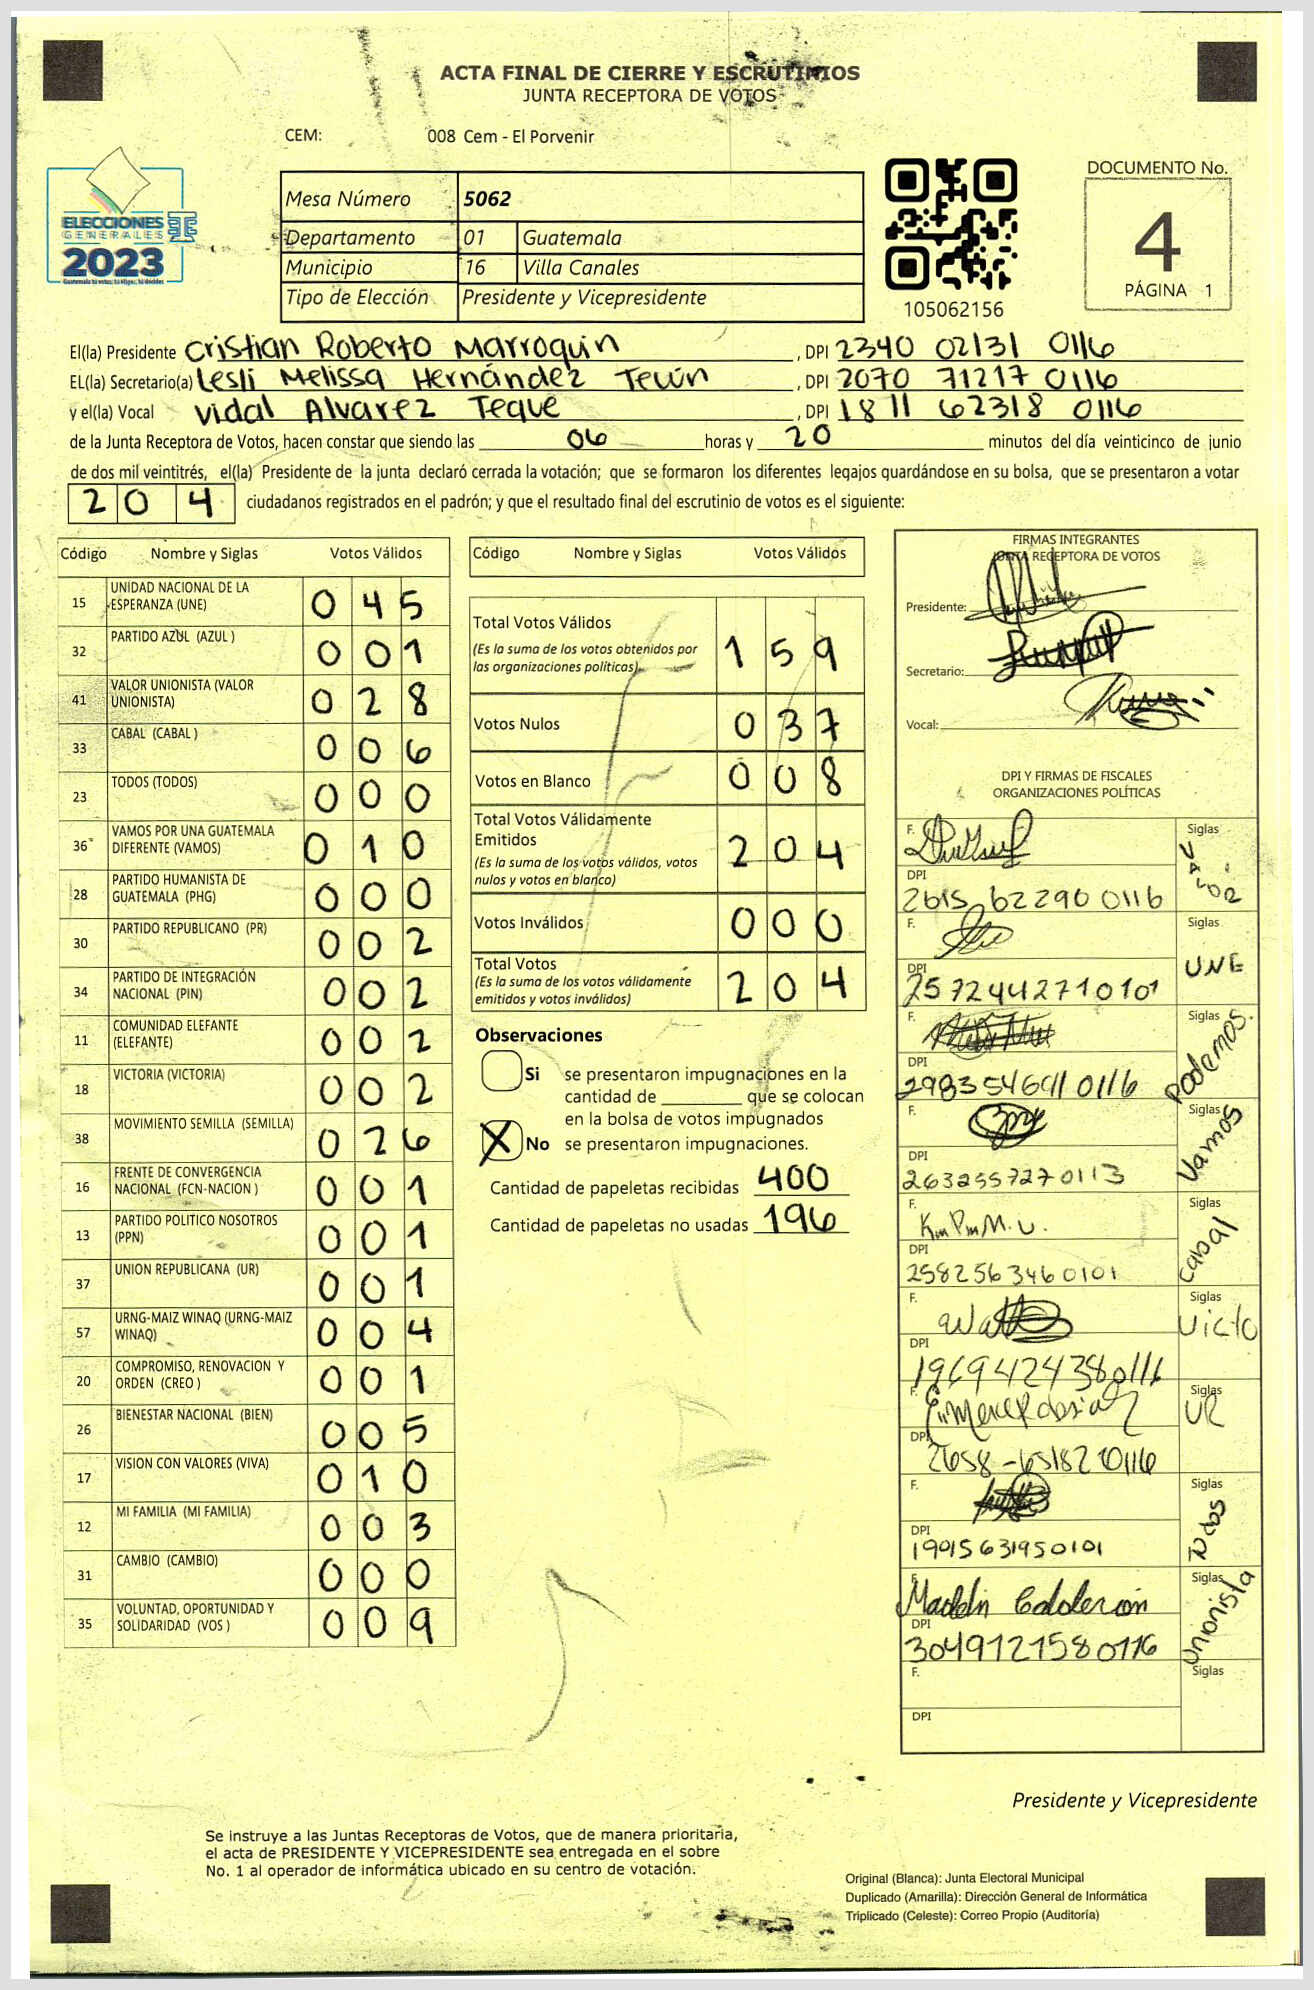 ACTA FINAL DE CIERRE Y ESCRUTINIOS
JUNTA RECEPTORA DE VOTOS
CEM: 008 Cem - El Porvenir
ELECCIONES
GENERALES
2023
Mesa Número 5062
Departamento 01 Guatemala
Municipio 16 Villa Canales
Tipo de Elección Presidente y Vicepresidente
105062156
DOCUMENTO No.
4
PÁGINA 1
El(la) Presidente Cristian Roberto Marroquin , DPI 2340 02131 0116
EL(la) Secretario(a) Lesli Melissa Hernández Tecún , DPI 2070 71217 0116
y el(la) Vocal Vidal Alvarez Teque , DPI 1811 62318 0116
de la Junta Receptora de Votos, hacen constar que siendo las 06 horas y 20 minutos del día veinticinco de junio
de dos mil veintitrés, el(la) Presidente de la junta declaró cerrada la votación; que se formaron los diferentes legajos guardándose en su bolsa, que se presentaron a votar
204 ciudadanos registrados en el padrón; y que el resultado final del escrutinio de votos es el siguiente:
Código Nombre y Siglas Votos Válidos
15 UNIDAD NACIONAL DE LA ESPERANZA (UNE) 045
32 PARTIDO AZUL (AZUL ) 001
41 VALOR UNIONISTA (VALOR UNIONISTA) 028
33 CABAL (CABAL ) 006
23 TODOS (TODOS) 000
36 VAMOS POR UNA GUATEMALA DIFERENTE (VAMOS) 010
28 PARTIDO HUMANISTA DE GUATEMALA (PHG) 000
30 PARTIDO REPUBLICANO (PR) 002
34 PARTIDO DE INTEGRACIÓN NACIONAL (PIN) 002
11 COMUNIDAD ELEFANTE (ELEFANTE) 002
18 VICTORIA (VICTORIA) 002
38 MOVIMIENTO SEMILLA (SEMILLA) 026
16 FRENTE DE CONVERGENCIA NACIONAL (FCN-NACION ) 001
13 PARTIDO POLITICO NOSOTROS (PPN) 001
37 UNION REPUBLICANA (UR) 001
57 URNG-MAIZ WINAQ (URNG-MAIZ WINAQ) 004
20 COMPROMISO, RENOVACION Y ORDEN (CREO ) 001
26 BIENESTAR NACIONAL (BIEN) 005
17 VISION CON VALORES (VIVA) 010
12 MI FAMILIA (MI FAMILIA) 003
31 CAMBIO (CAMBIO) 000
35 VOLUNTAD, OPORTUNIDAD Y SOLIDARIDAD (VOS ) 009
Código Nombre y Siglas Votos Válidos
Total Votos Válidos 159
(Es la suma de los votos obtenidos por
las organizaciones políticas)
Votos Nulos 037
Votos en Blanco 008
Total Votos Válidamente
Emitidos 204
(Es la suma de los votos válidos, votos
nulos y votos en blanco)
Votos Inválidos 000
Total Votos 204
(Es la suma de los votos válidamente
emitidos y votos inválidos)
Observaciones
Si se presentaron impugnaciones en la
cantidad de ________ que se colocan
en la bolsa de votos impugnados
X No se presentaron impugnaciones.
Cantidad de papeletas recibidas 400
Cantidad de papeletas no usadas 196
FIRMAS INTEGRANTES
JUNTA RECEPTORA DE VOTOS
Presidente:
Secretario:
Vocal:
DPI Y FIRMAS DE FISCALES
ORGANIZACIONES POLÍTICAS
F. Siglas VALOR
DPI 2615 62290 0116
F. Siglas UNE
DPI 2572442710101
F. Siglas Podemos.
DPI
F. Siglas Vamos
DPI 2632557270113
F. Siglas Cabal
DPI 2582563460101
F. Siglas Victo
DPI 1969424380116
F. Siglas UR
DPI
F. Siglas Todos
DPI 19015631950101
F. Maddin Calderón Siglas Unionista
DPI 3049121580116
F. Siglas
DPI
Presidente y Vicepresidente
Se instruye a las Juntas Receptoras de Votos, que de manera prioritaria,
el acta de PRESIDENTE Y VICEPRESIDENTE sea entregada en el sobre
No. 1 al operador de informática ubicado en su centro de votación.
Original (Blanca): Junta Electoral Municipal
Duplicado (Amarilla): Dirección General de Informática
Triplicado (Celeste): Correo Propio (Auditoría)